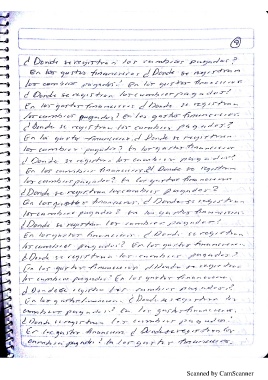 ¿Donde se registran los cambios pagados?
En los gastos financieros ¿Donde se registran
los cambios pagados? En los gastos financieros
En los gastos financieros ¿Donde se registran
los cambios pagados? En los gastos financieros
¿Donde se registran los cambios pagados?
En los gastos financieros ¿Donde se registran
los cambios pagados? En los gastos financieros
¿Donde se registran los cambios pagados?
En los cambios financieros ¿Donde se registran
los cambios pagados? En los gastos financieros
¿Donde se registran los cambios pagados?
En los gastos financieros ¿Donde se registran
los cambios pagados? En los gastos financieros
¿Donde se registran los cambios pagados?
En los gastos financieros ¿Donde se registran
los cambios pagados? En los gastos financieros
¿Donde se registran los cambios pagados?
En los gastos financieros ¿Donde se registran
los cambios pagados? En los gastos financieros
¿Donde se registra los cambios pagados?
En los gastos financieros ¿Donde se registran los
cambios pagados? En los gastos financieros
¿Donde se registran los cambios pagados?
En los gastos financieros ¿Donde se registran los
cambios pagados? En los gastos financieros
Scanned by CamScanner